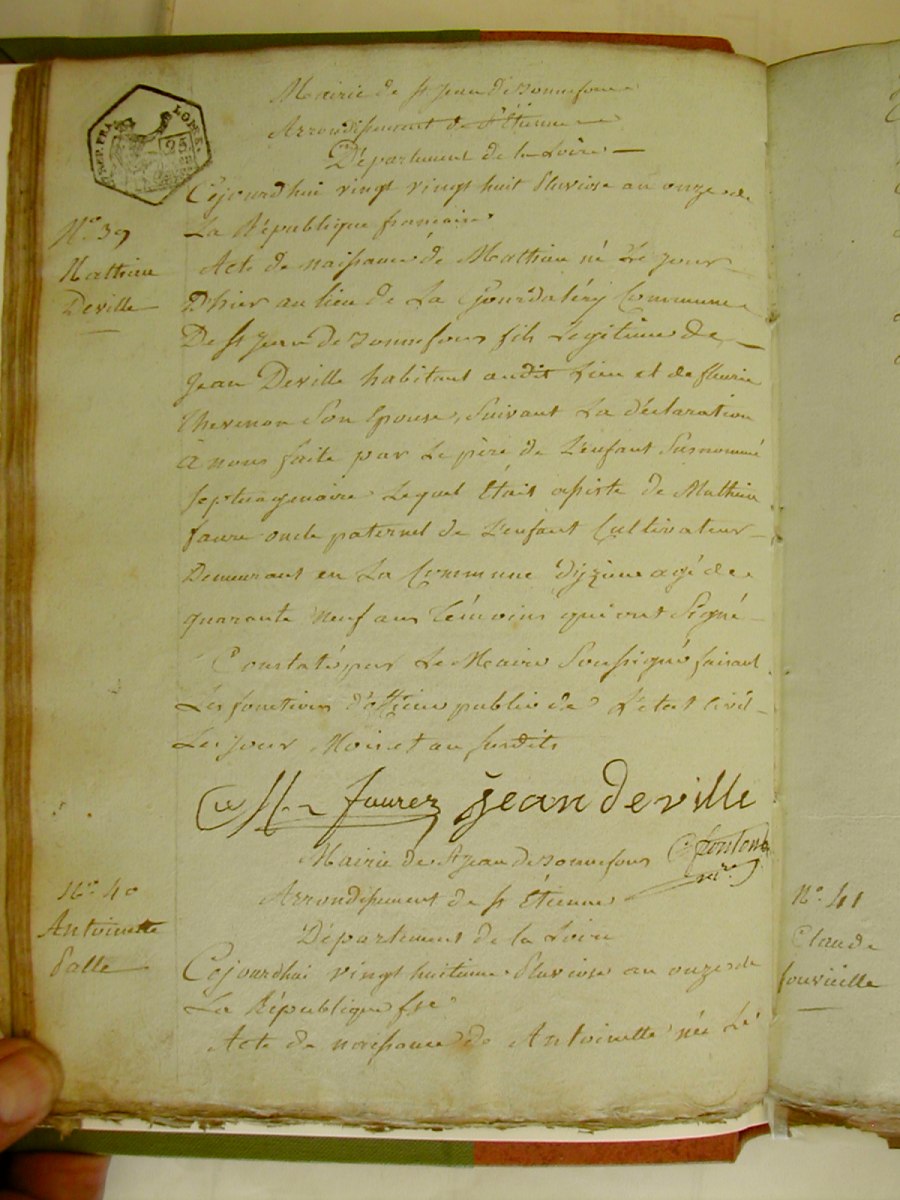 Mairie de St Jean de Bonnefons
Arrondissement de St Étienne
Département de la Loire
25
Cejourdhui vingt vingt huit Pluviose an onze de
La République francaise
No. 39
Mathieu
Deville
Acte de naissance de Mathieu né Le jour
D'hier au lieu de La Commune
De St Jean de Bonnefons fils Legitime de
Jean Deville habitant audit Lieu et de fleurie
Chevenon Son Epouse, Suivant La déclaration
à nous faite par Le père de L'enfant Susnommé
septuagenaire Lequel Etait assisté de Mathieu
faure oncle paternel de L'enfant Cultivateur
Demeurant en La Commune d'yzieu agé de
quarante neuf ans témoins qui ont Signé
Constaté par Le Maire Soussigné faisant
Les fonctions d'officier public de L'etat Civil
Les jour Mois et an susdits
faurez jean deville
Mairie de St Jean de Bonnefons
Arrondissement de St Étienne
Département de la Loire
No. 40
Antoinette
Palle
Cejourdhui vingt huitieme Pluviose an onze de
La République fse
Acte de naissance de Antoinette née Le
No. 41
Claude
fouvieille